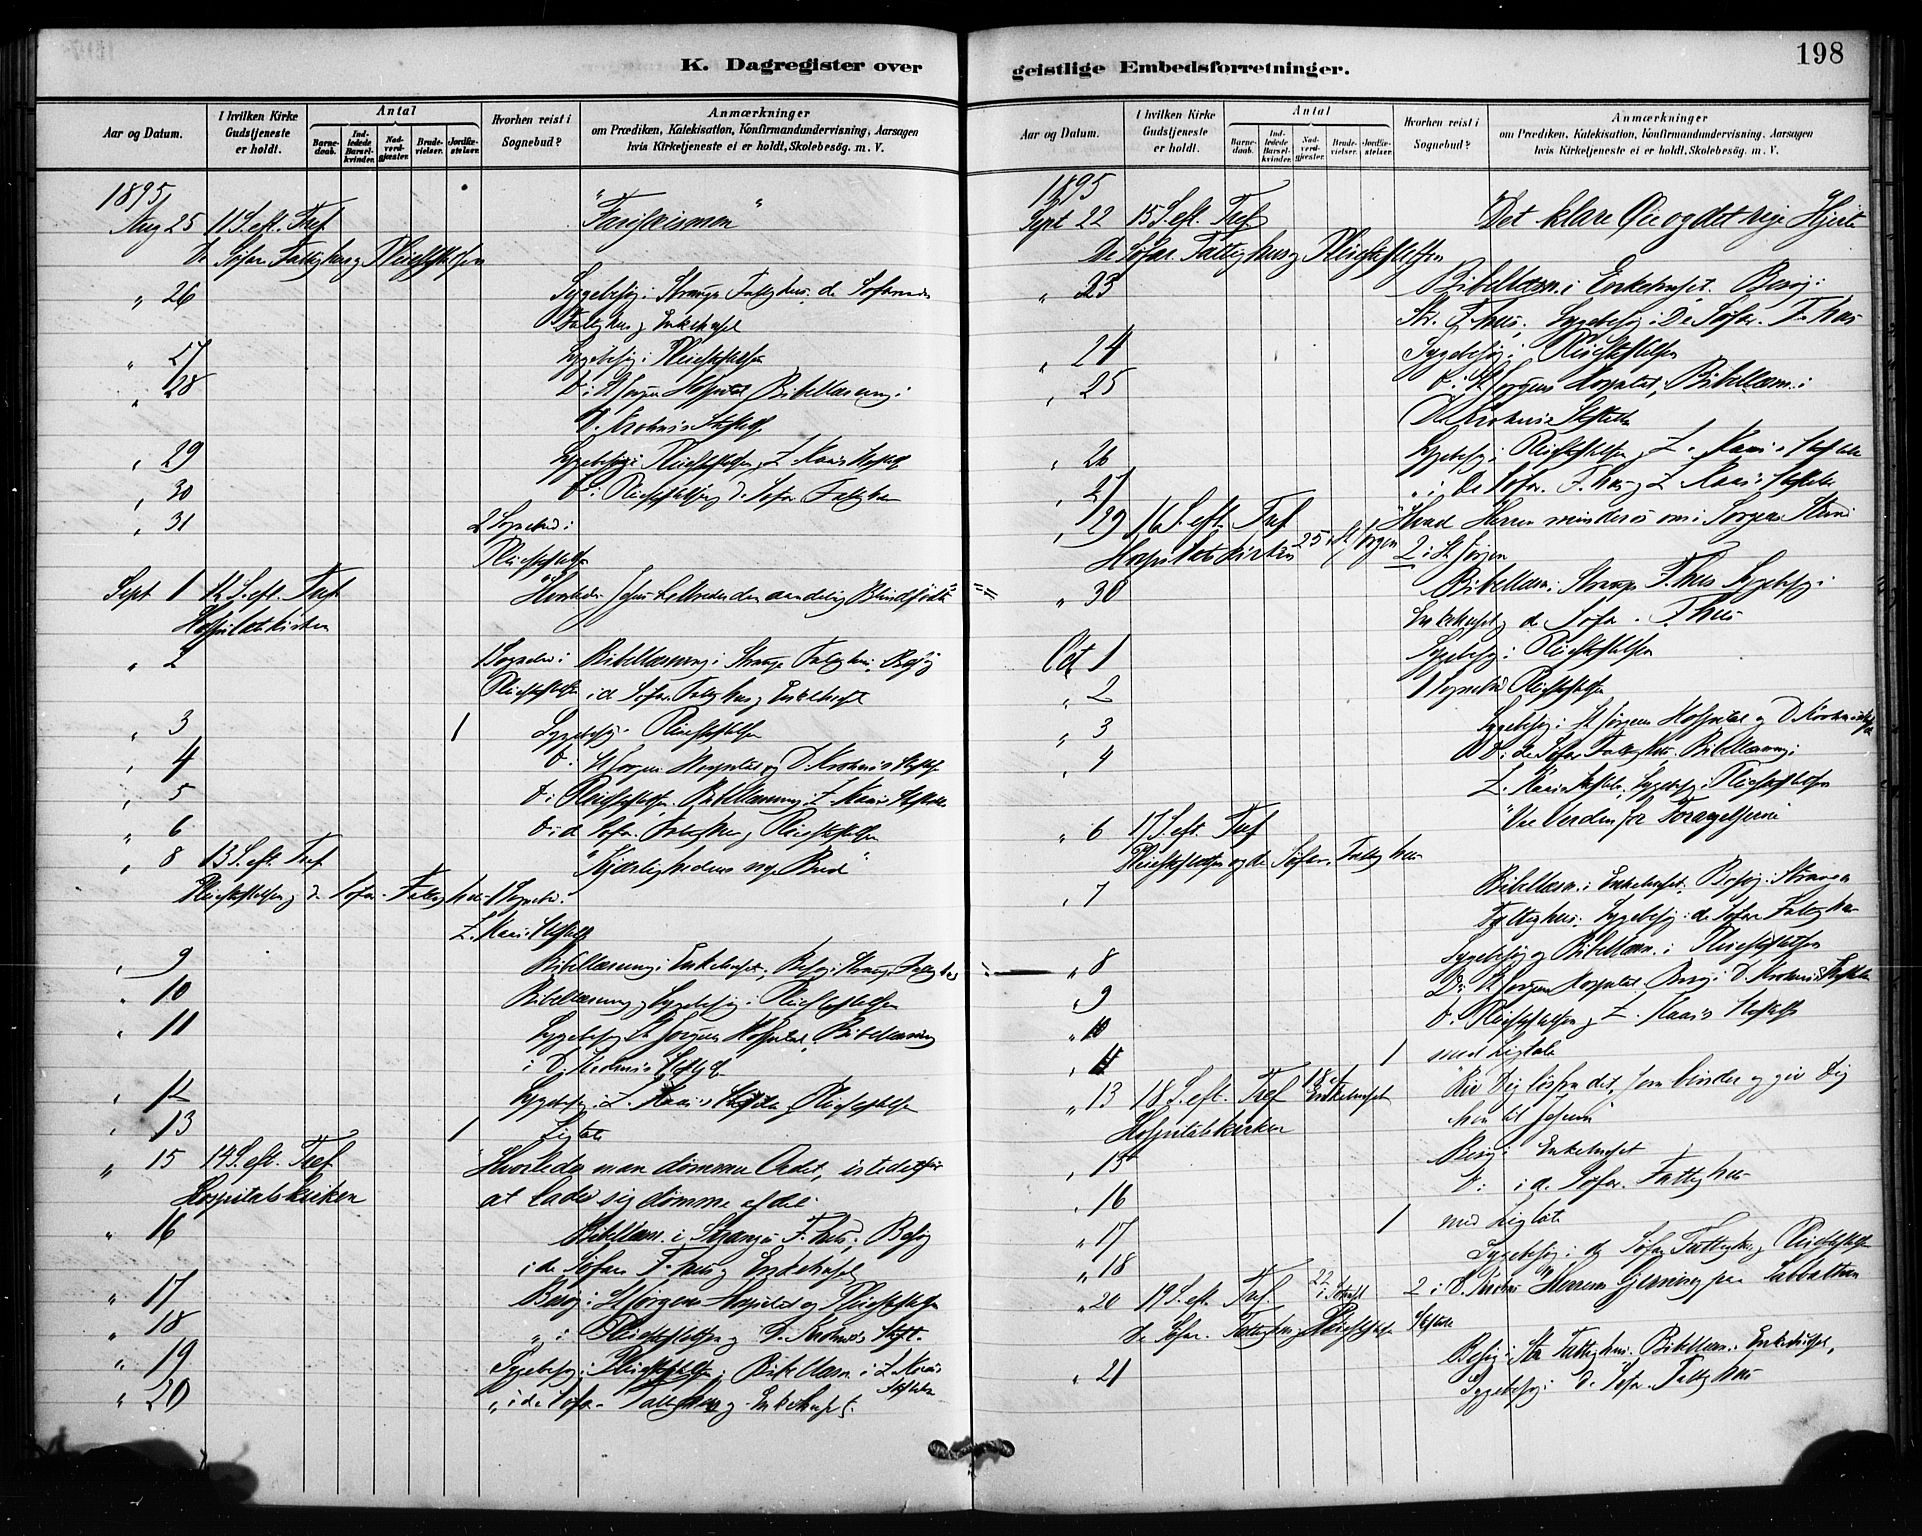 K. Dagregister over
Aar og Datum.
I hvilken Kirke Gudstjeneste er holdt.
Antal
Barnedaab.
Indledede Barselkvinder.
Nadverdgjæster.
Brudevielser.
Jordfæstelser.
Hvorhen reist i Sognebud?
Anmærkninger
om Prædiken, Katekisation, Konfirmandundervisning, Aarsagen
hvis Kirketjeneste ei er holdt, Skolebesøg. m. V.
1895
Aug 25 11 S. eft. Tref "Farisæismen"
De Søfar. Fattighus og Pleiestiftelsen
" 26 Sygebesøg i Stranges Fattighus, de Søfarendes
Fattighus og Enkehuset
" 27 Sygebesøg i Pleiestiftelsen
" 28 Do i St Jørgens Hospital Bibellæsning i
D. Krohns Stiftelse
" 29 Sygebesøg i Pleiestiftelsen, Z. Kaas Stiftelse
" 30 Do i Pleiestiftelsen og De Søfar. Fattighus
" 31 2 Sognebud i
Pleiestiftelsen
Sept 1 12 S. eft. Tref Hvorledes Jesus helbreder den aandelig Blindfødte
Hospitalskirken
" 2 1 Sognebud i Bibellæsning i Stranges Fattighus. Besøg
Pleiestiftelsen i de Søfar. Fattighus og Enkehuset
" 3 1 Sygebesøg i Pleiestiftelsen
" 4 Do i St Jørgens Hospital og D. Krohns Stiftelse
" 5 Do i Pleiestiftelsen. Bibellæsning i Z. Kaas Stiftelse
" 6 Do i de Søfar. Fattighus og Pleiestiftelsen
" 8 13 S. eft. Tref "Kjærlighedens nye Bud"
Pleiestiftelsen og de Søfar. Fattighus 1 Sognebud i
Z. Kaas Stiftelse
" 9 Bibellæsning i Enkehuset, Besøg i Stranges Fattighus
" 10 Bibellæsning og Sygebesøg i Pleiestiftelsen
" 11 Sygebesøg St Jørgens Hospital. Bibellæsning
i D. Krohns Stiftelse
" 12 Sygebesøg i Z. Kaas Stiftelse, Pleiestiftelsen
" 13 1 Ligtale
" 15 14 S. eft. Tref "Hvorledes man dømmer Ordet, istedetfor
Hospitalskirken at lade sig dømme af det
" 16 Bibellæsn. i Stranges F.hus, Besøg
i de Søfar. F.hus og Enkehuset
" 17 Besøg i St Jørgens Hospital og Pleiestiftelsen
" 18 " i Pleiestiftelsen og D. Krohns Stift.
" 19 Sygebesøg i Pleiestiftelsen, Bibellæsn. i Z. Kaas
Stiftelse
" 20 " i de Søfar. Fattighus og Enkehuset.
geistlige Embedsforretninger.
198
Aar og Datum.
I hvilken Kirke Gudstjeneste er holdt.
Antal
Barnedaab.
Indledede Barselkvinder.
Nadverdgjæster.
Brudevielser.
Jordfæstelser.
Hvorhen reist i Sognebud?
Anmærkninger
om Prædiken, Katekisation, Konfirmandundervisning, Aarsagen
hvis Kirketjeneste ei er holdt, Skolebesøg. m. V.
1895
Sept 22 15 S. eft. Tref Det klare Øie og det rige Hjerte
De Søfar. Fattighus og Pleiestiftelsen
" 23 Bibellæsn. i Enkehuset. Besøg i
Str. F.hus. Sygebesøg i De Søfar. F.hus
" 24 Sygebesøg i Pleiestiftelsen
" 25 Do i St Jørgens Hospital, Bibellæsn. i
D. Krohns Stiftelse
" 26 Sygebesøg i Pleiestiftelsen, Z. Kaas Stiftelse
" 27 " i De Søfar. F.hus og Z. Kaas Stiftelse
" 29 16 S. eft. Tref "Hvad Herren minder os om i Sorgens Stund
Hospitalskirken 25 i St. Jørgen 2 i St Jørgen
" 30 Bibellæsn. i Stranges F.hus Sygebesøg i
Enkehuset og de Søfar. F.hus
Oct 1 Sygebesøg i Pleiestiftelsen
" 2 1 Sognebud Pleiestiftelsen
" 3 Sygebesøg i St Jørgens Hospital og D. Krohns Stiftelse
" 4 Do i de Søfar. Fattighus. Bibellæsning i
Z. Kaas Stiftelse. Sygebesøg i Pleiestiftelsen
" 6 17 S. eft. Tref
Pleiestiftelsen og de Søfar. Fattighus
" 7 Bibellæsn. i Enkehuset. Besøg i Stranges
Fattighus. Sygebesøg i de Søfar. Fattighus
" 8 Sygebesøg og Bibellæsn. i Pleiestiftelsen
" 9 Do i St Jørgens Hospital. Besøg i D. Krohns Stiftelse
" 10 Do i Pleiestiftelsen og Z. Kaas Stiftelse
" 11 1 med Ligtale
" 13 18 S. eft. Tref 18 i Enkehuset "Riv Dig løs fra det, som binder og giv Dig
Hospitalskirken hen til Jesum"
" 15 Besøg i Enkehuset
" 16 Do i de Søfar. Fattighus
" 17 1 med Ligtale
" 18 Sygebesøg i de Søfar. Fattighus og Pleiestiftelsen
" 20 19 S. eft. Tref 22 2 i D. Krohns Herrens Gjerning paa Sabbathen
De Søfar. Fattighus og Pleiestiftelsen Stiftelse
" 21 Besøg i Str. Fattighus. Bibellæsn. i Enkehuset,
Sygebesøg i de Søfar. Fattighus